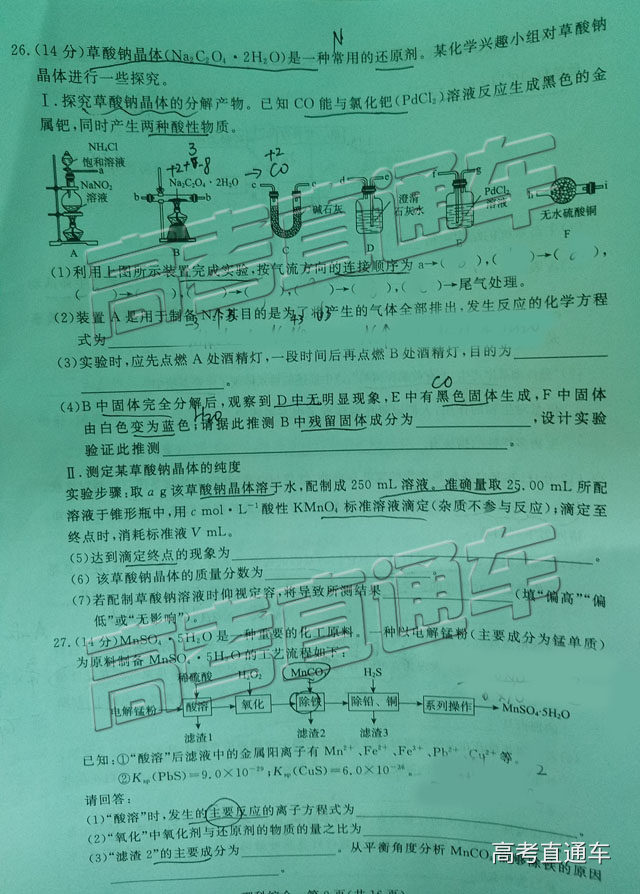 26.(14分)草酸钠晶体(Na₂C₂O₄·2H₂O)是一种常用的还原剂。某化学兴趣小组对草酸钠
晶体进行一些探究。
Ⅰ.探究草酸钠晶体的分解产物。已知CO能与氯化钯(PdCl₂)溶液反应生成黑色的金
属钯,同时产生两种酸性物质。
NH₄Cl
饱和溶液
NaNO₂
溶液
Na₂C₂O₄·2H₂O
CO
碱石灰
澄清
石灰水
PdCl₂
溶液
无水硫酸铜
A B C D E F
(1)利用上图所示装置完成实验,按气流方向的连接顺序为a→( ),( )
( )→( ),( )→( ),( )→( ),( )→尾气处理。
(2)装置A是用于制备N₂,其目的是为了将产生的气体全部排出,发生反应的化学方程
式为
(3)实验时,应先点燃A处酒精灯,一段时间后再点燃B处酒精灯,目的为
。
(4)B中固体完全分解后,观察到D中无明显现象,E中有黑色固体生成,F中固体
由白色变为蓝色,请据此推测B中残留固体成分为 ,设计实验
验证此推测 。
Ⅱ.测定某草酸钠晶体的纯度
实验步骤:取a g该草酸钠晶体溶于水,配制成250 mL溶液。准确量取25.00 mL所配
溶液于锥形瓶中,用c mol·L⁻¹酸性KMnO₄标准溶液滴定(杂质不参与反应);滴定至
终点时,消耗标准液V mL。
(5)达到滴定终点的现象为 。
(6)该草酸钠晶体的质量分数为 。
(7)若配制草酸钠溶液时仰视定容,将导致所测结果 (填“偏高”“偏
低”或“无影响”)。
27.(14分)MnSO₄·5H₂O是一种重要的化工原料。一种以电解锰粉(主要成分为锰单质)
为原料制备MnSO₄·5H₂O的工艺流程如下:
稀硫酸 H₂O₂ MnCO₃ H₂S
电解锰粉 酸溶 氧化 除铁 除铅、铜 系列操作 MnSO₄·5H₂O
滤渣1 滤渣2 滤渣3
已知:①“酸溶”后滤液中的金属阳离子有Mn²⁺、Fe²⁺、Fe³⁺、Pb²⁺、Cu²⁺等。
②Ksp(PbS)=9.0×10⁻²⁹;Ksp(CuS)=6.0×10⁻³⁶。
请回答:
(1)“酸溶”时,发生的主要反应的离子方程式为
(2)“氧化”中氧化剂与还原剂的物质的量之比为
(3)“滤渣2”的主要成分为 。从平衡角度分析MnCO₃ 除铁的原因
高考直通车